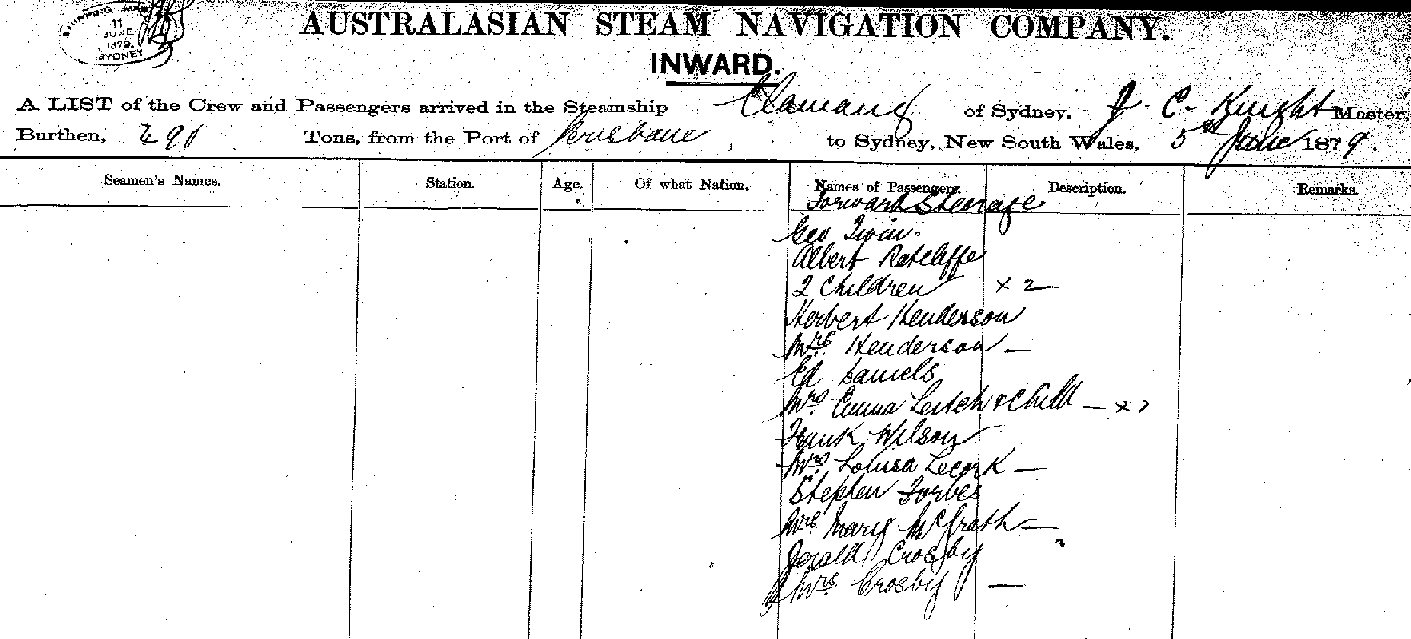 11
JUNE
1879
SYDNEY
AUSTRALASIAN STEAM NAVIGATION COMPANY.
INWARD.
A LIST of the Crew and Passengers arrived in the Steamship of Sydney, J. C. Knight Master,
Burthen, Tons, from the Port of Brisbane to Sydney, New South Wales, 5th June 1879.
Seamen's Names. Station. Age. Of what Nation. Names of Passengers. Description. Remarks.
Forward Steerage
Geo Irwin
Albert Ratcliffe
2 Children x 2
Herbert Henderson
Mrs Henderson —
Ed Daniels
Mrs Emma Leitch & Child — x
Frank Wilson
Mrs Louisa —
Stephen Forbes
Mrs Mary McGrath —
Gerald Crosby
Mrs Crosby —